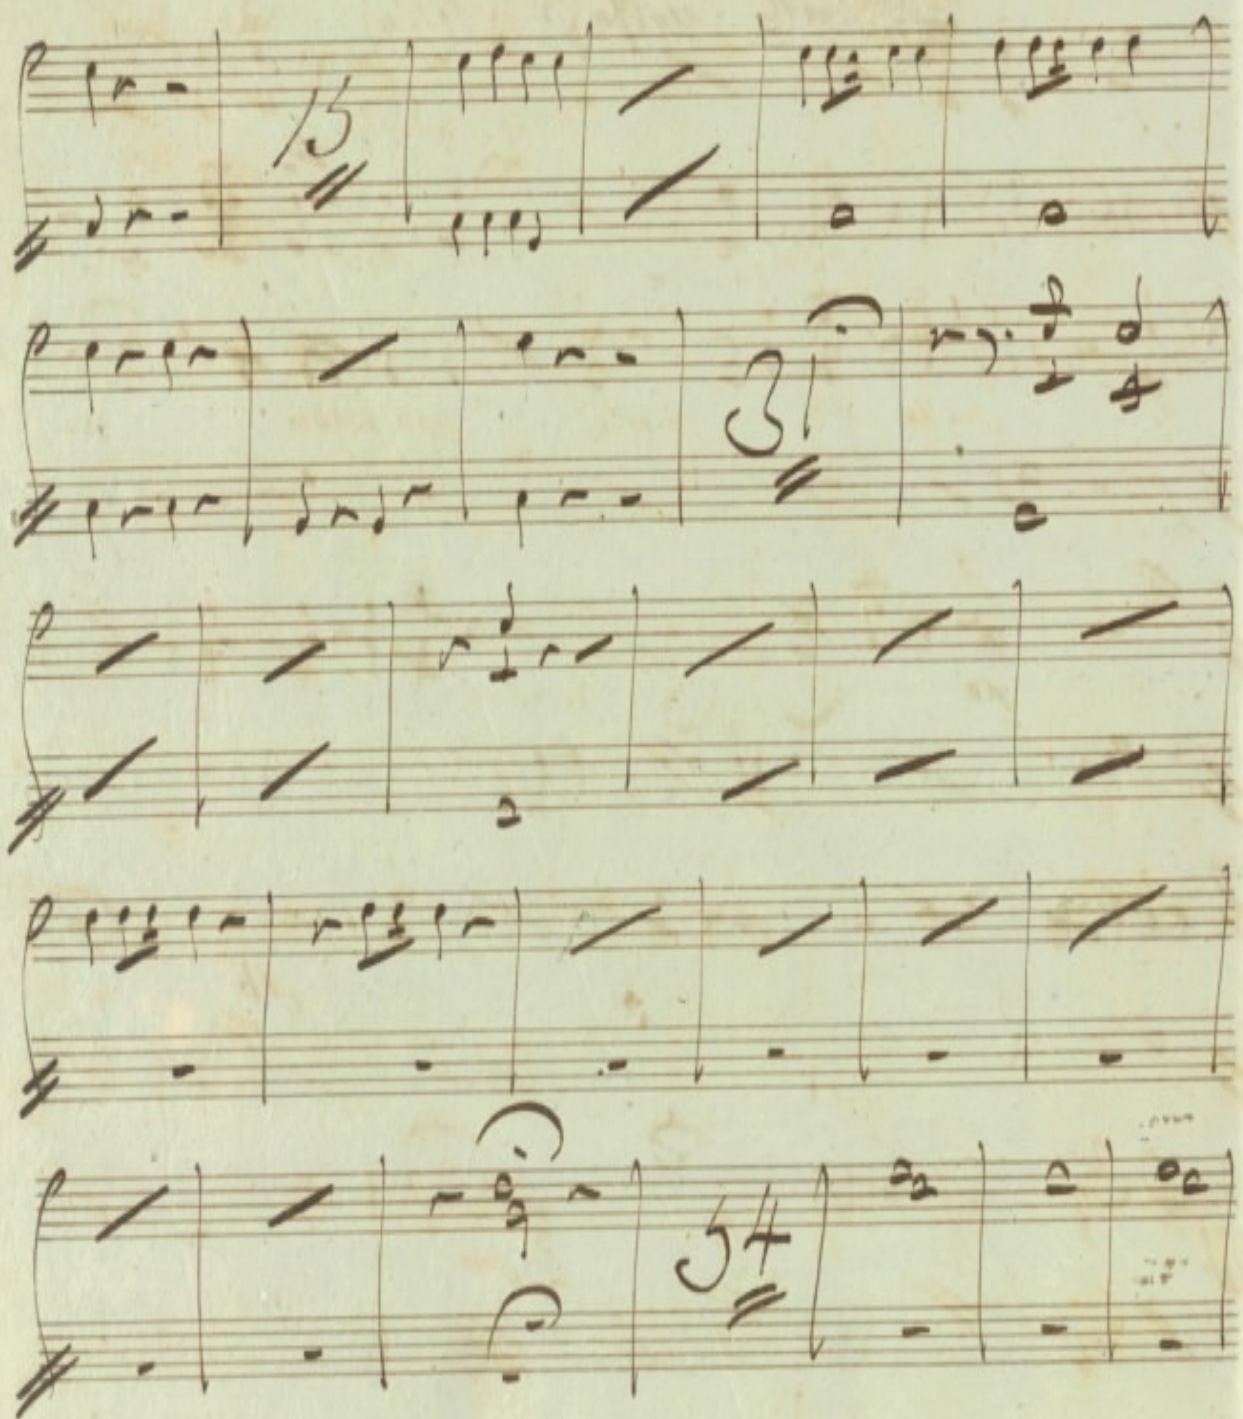 15
31
54